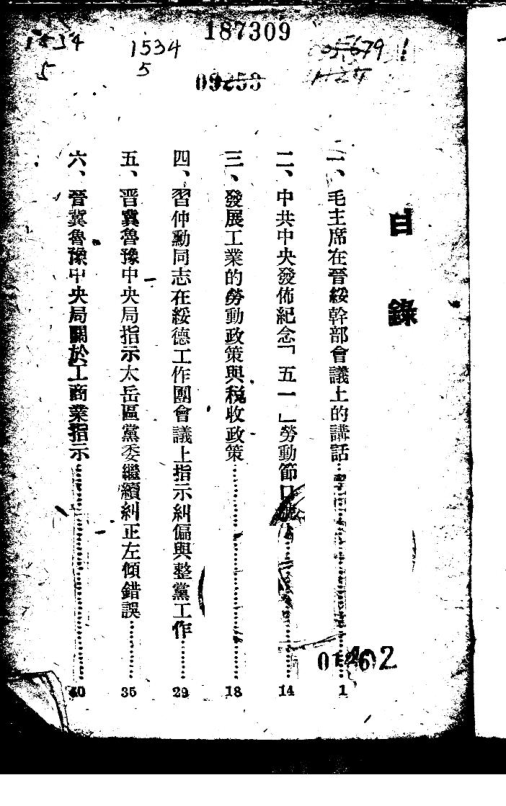 187309
1534
5
1534
5
09253
目錄
一、毛主席在晉綏幹部會議上的講話 1
二、中共中央發佈紀念「五一」勞動節口號 14
三、發展工業的勞動政策與稅收政策 18
四、習仲勳同志在綏德工作團會議上指示糾偏與整黨工作 29
五、晋冀魯豫中央局指示太岳區黨委繼續糾正左傾錯誤 35
六、晉冀魯豫中央局關於工商業指示 40